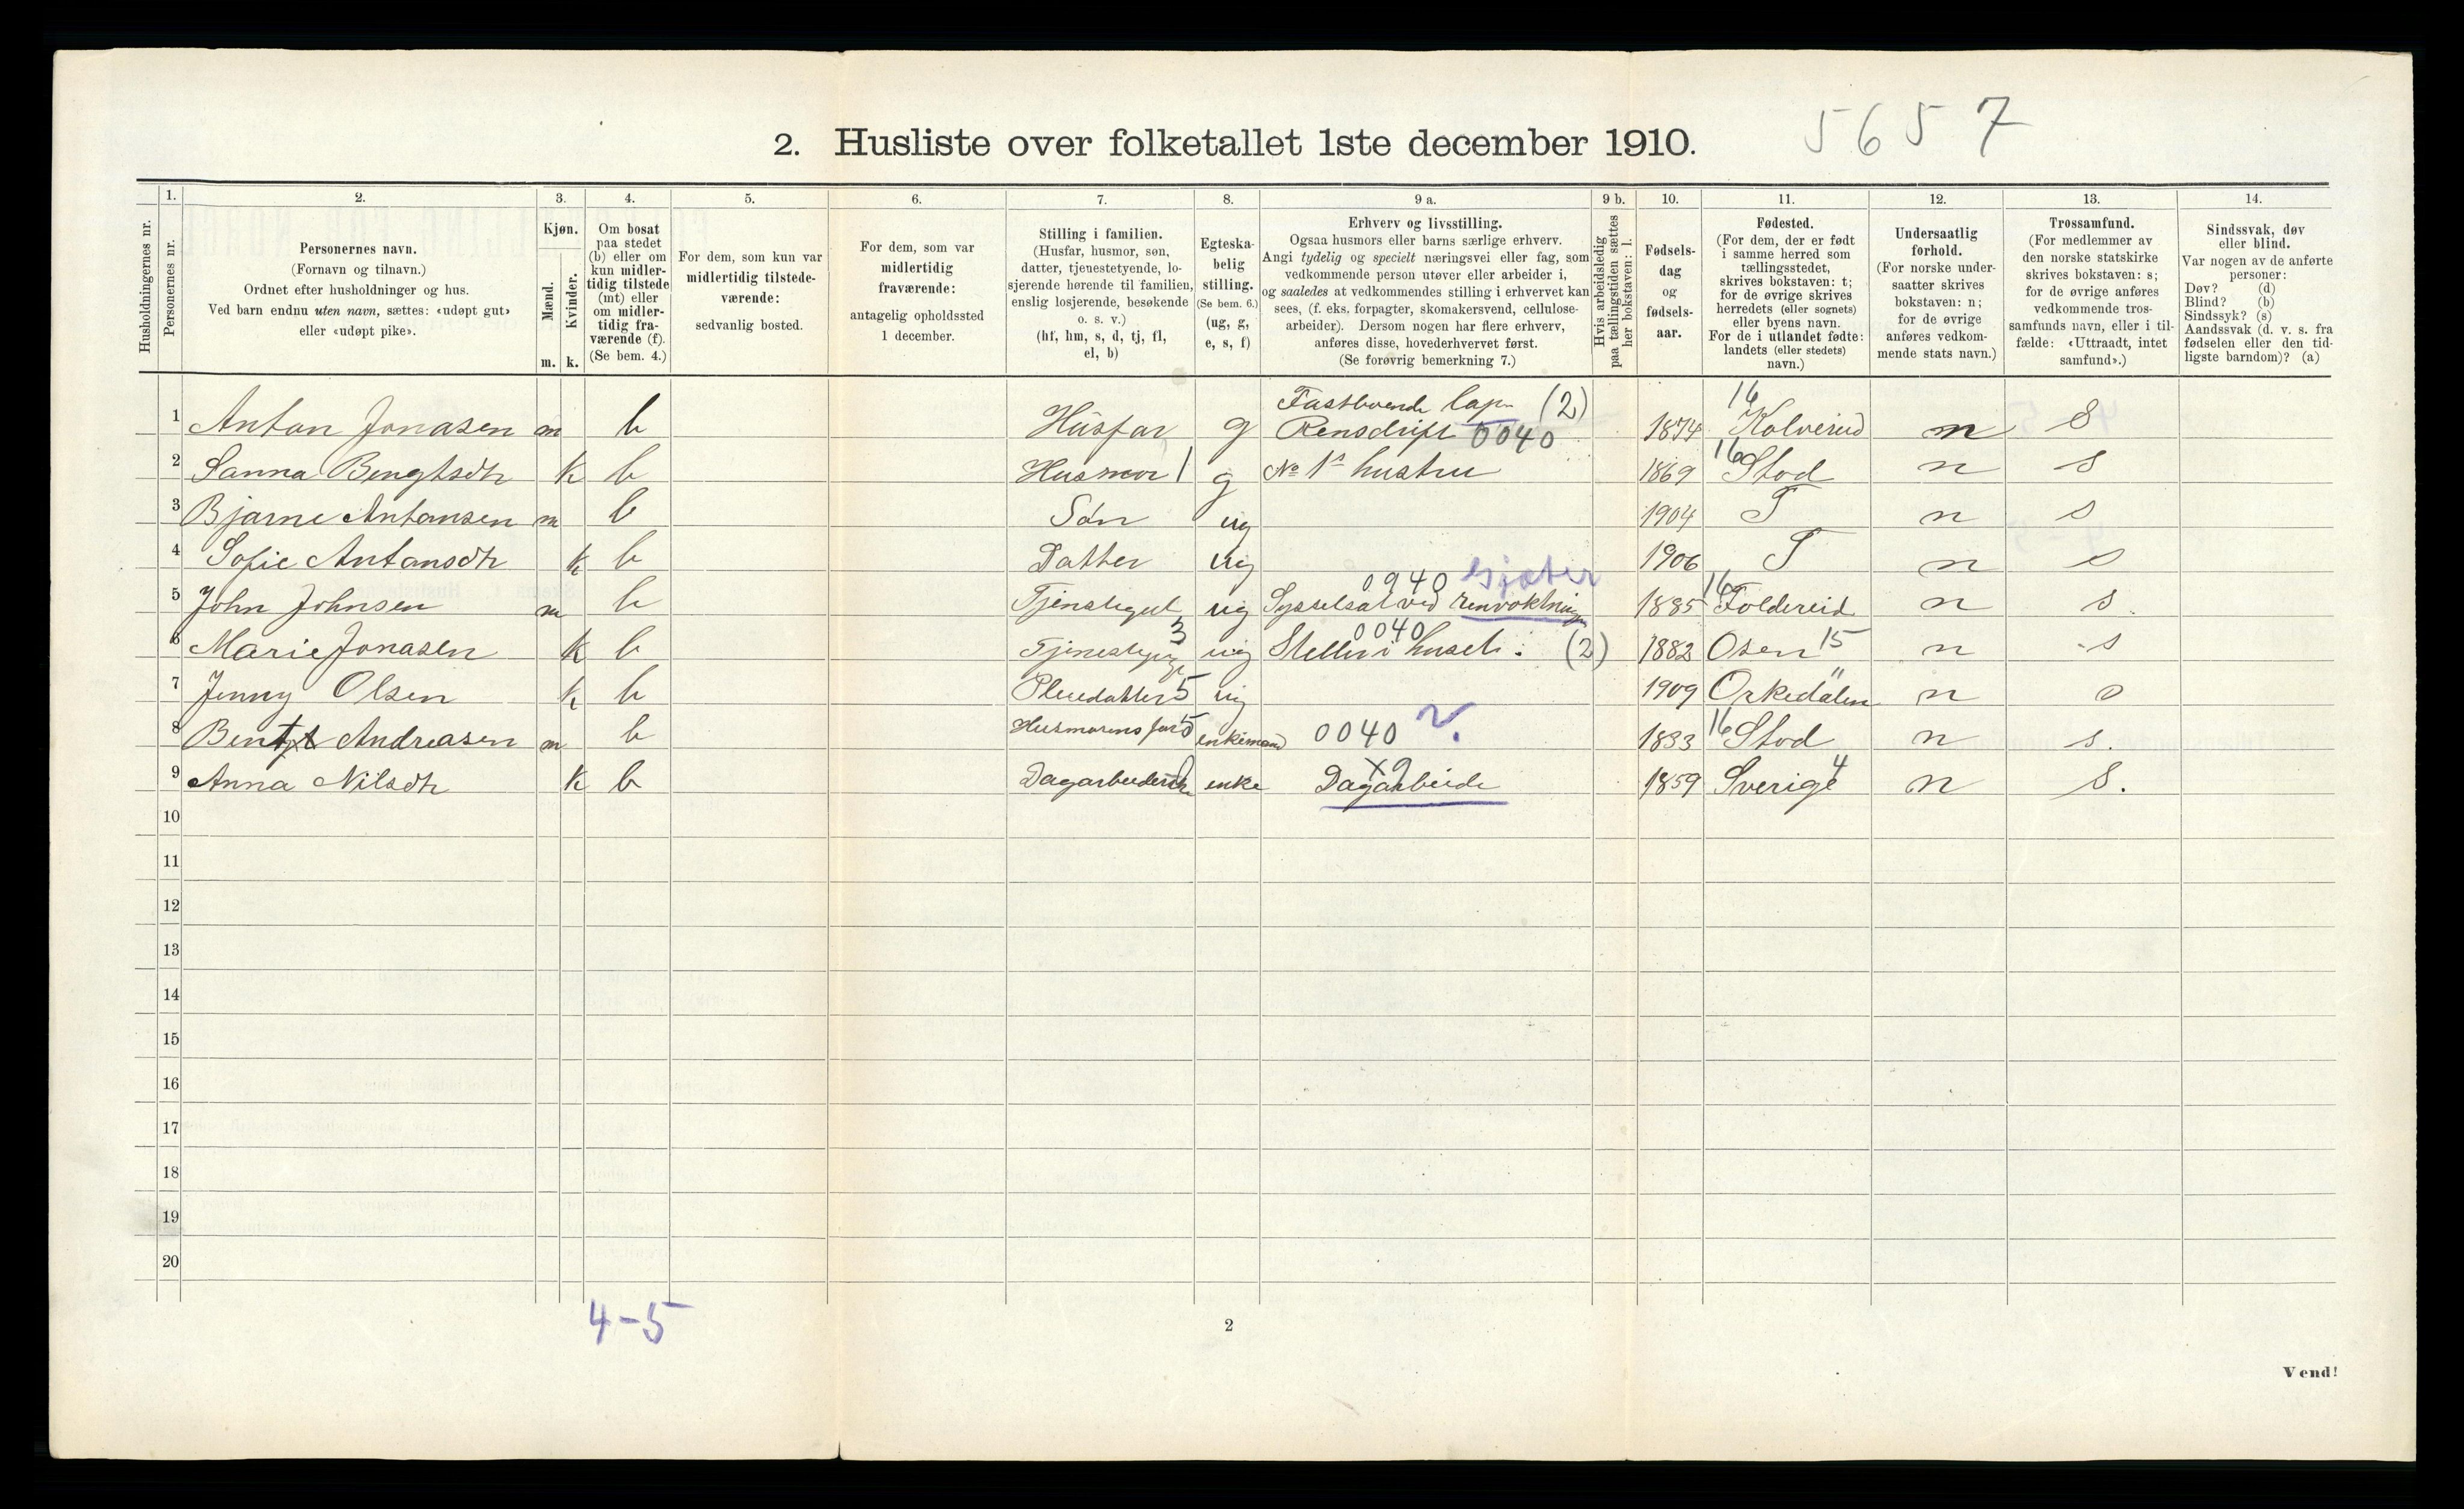 5657
2. Husliste over folketallet 1ste december 1910.
Husholdningernes nr.
1.
Personernes nr.
2.
Personernes navn.
(Fornavn og tilnavn.)
Ordnet efter husholdninger og hus.
Ved barn endnu uten navn, sættes: «udøpt gut»
eller «udøpt pike».
3.
Kjøn.
Mænd.
Kvinder.
m. k.
4.
Om bosat
paa stedet
(b) eller om
kun midler-
tidig tilstede
(mt) eller
om midler-
tidig fra-
værende (f).
(Se bem. 4.)
5.
For dem, som kun var
midlertidig tilstede-
værende:
sedvanlig bosted.
6.
For dem, som var
midlertidig
fraværende:
antagelig opholdssted
1 december.
7.
Stilling i familien.
(Husfar, husmor, søn,
datter, tjenestetyende, lo-
sjerende hørende til familien,
enslig losjerende, besøkende
o. s. v.)
(hf, hm, s, d, tj, fl,
el, b)
8.
Egteska-
belig
stilling.
(Se bem. 6.)
(ug, g,
e, s, f)
9 a.
Erhverv og livsstilling.
Ogsaa husmors eller barns særlige erhverv.
Angi tydelig og specielt næringsvei eller fag, som
vedkommende person utøver eller arbeider i,
og saaledes at vedkommendes stilling i erhvervet kan
sees, (f. eks. forpagter, skomakersvend, cellulose-
arbeider). Dersom nogen har flere erhverv,
anføres disse, hovederhvervet først.
(Se forøvrig bemerkning 7.)
9 b.
Hvis arbeidsledig
paa tællingstiden sættes
her bokstaven: l.
10.
Fødsels-
dag
og
fødsels-
aar.
11.
Fødested.
(For dem, der er født
i samme herred som
tællingsstedet,
skrives bokstaven: t;
for de øvrige skrives
herredets (eller sognets)
eller byens navn.
For de i utlandet fødte:
landets (eller stedets)
navn.)
12.
Undersaatlig
forhold.
(For norske under-
saatter skrives
bokstaven: n;
for de øvrige
anføres vedkom-
mende stats navn.)
13.
Trossamfund.
(For medlemmer av
den norske statskirke
skrives bokstaven: s;
for de øvrige anføres
vedkommende tros-
samfunds navn, eller i til-
fælde: «Uttraadt, intet
samfund».)
14.
Sindssvak, døv
eller blind.
Var nogen av de anførte
personer:
Døv? (d)
Blind? (b)
Sindssyk? (s)
Aandssvak (d. v. s. fra
fødselen eller den tid-
ligste barndom)? (a)
Fastboende lap (2) 16
1 Anton Jonasen m b Husfar g Rensdrift 0040 1874 Kolvereid n S
2 Sanna Bengtsdtr k b Husmor 1 g No 1s hustru 1869 16 Stod n s
3 Bjarne Antonsen m b Søn ug 1904 T n s
4 Sofie Antonsdtr k b Datter ug 1906 T n s
0940 Gjæter
5 John Johnsen m b Tjenestegut ug Sysselsat ved renvoktning 1885 16 Foldereid n s.
3 0040
6 Marie Jonasen k b Tjenestepige ug Steller i huset: (2) 1882 Osen 15 n s
7 Jenny Olsen k b Pleiedatter 5 ug 1909 Orkedalen n s
8 Bent Andreasen m b Husmorens far 5 enkemand 0040 1833 16 Stod n s.
x9
9 Anna Nilsdtr k b Dagarbeiderske enke Dagarbeide 1859 Sverige 4 n S.
10
11
12
13
14
15
16
17
18
19
20
4-5
2
Vend!